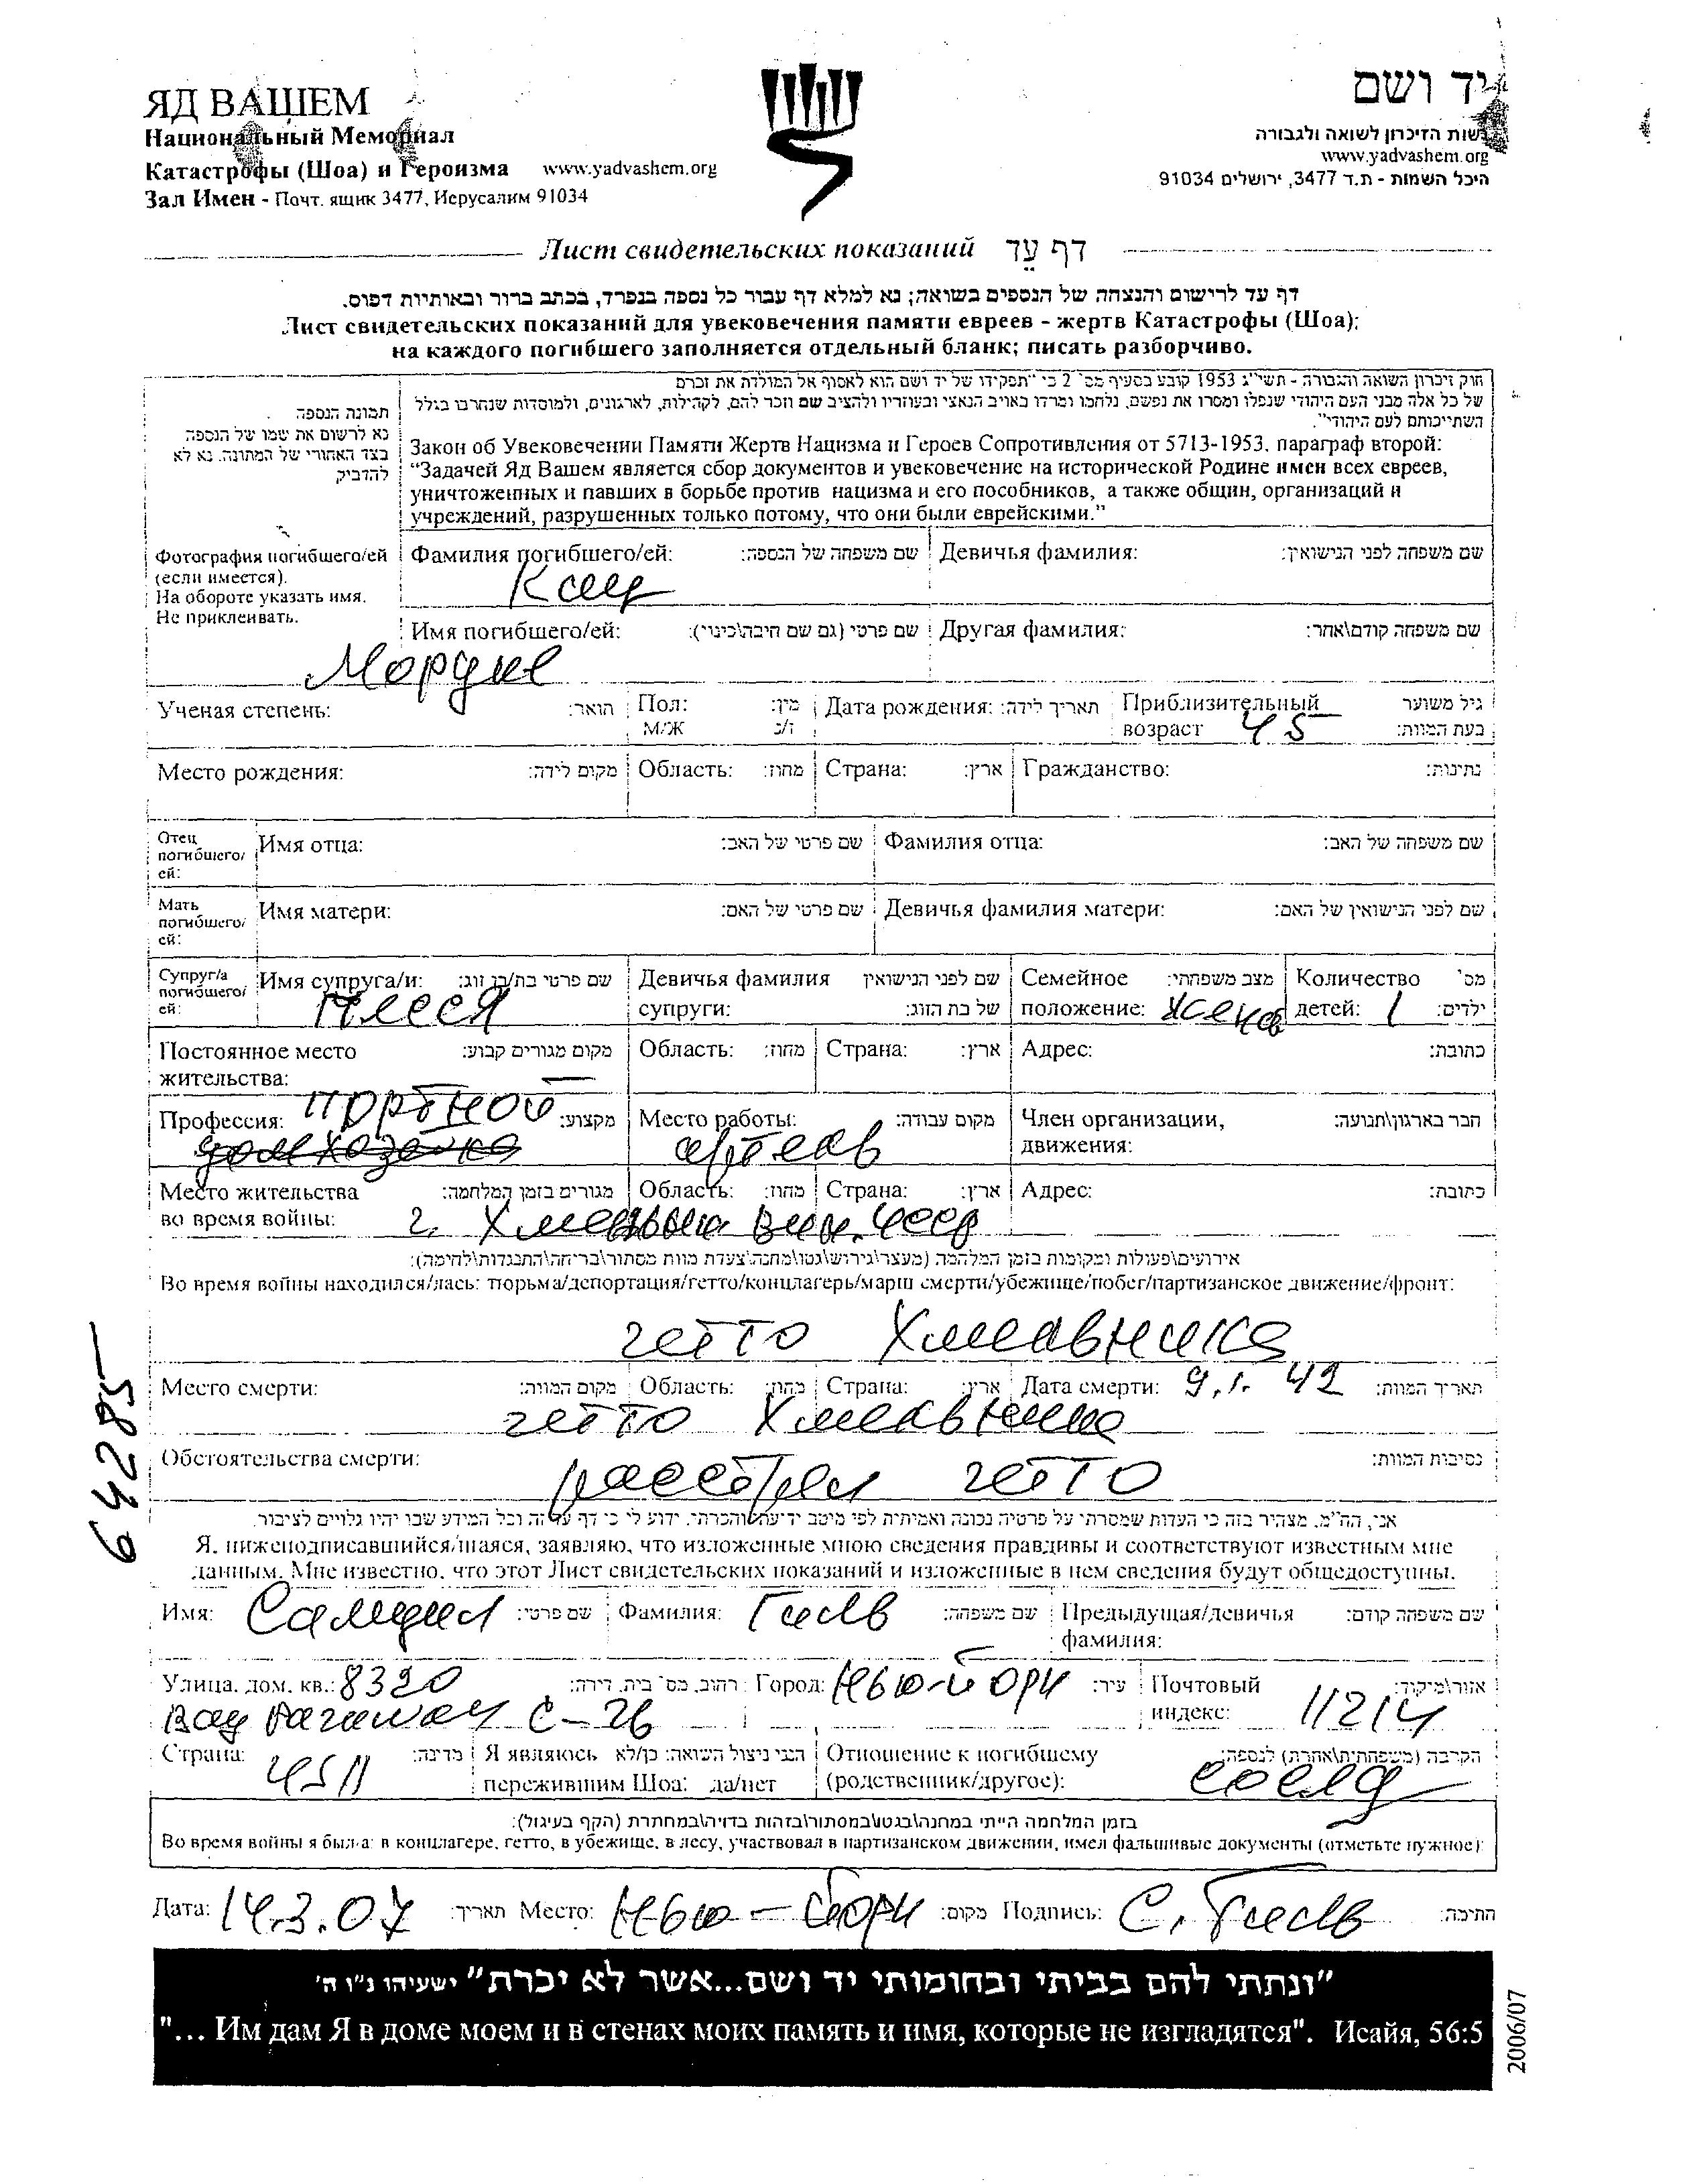 ЯД ВАШЕМ
יד ושם
Национальный Мемориал
רשות הזיכרון לשואה ולגבורה
Катастрофы (Шоа) и Героизма www.yadvashem.org
www.yadvashem.org
Зал Имен - Почт. ящик 3477, Иерусалим 91034
היכל השמות - ת.ד 3477, ירושלים 91034
Лист свидетельских показаний דף עד
דף עד לרישום והנצחה של הנספים בשואה; נא למלא דף עבור כל נספה בנפרד, בכתב ברור ובאותיות דפוס.
Лист свидетельских показаний для увековечения памяти евреев - жертв Катастрофы (Шоа);
на каждого погибшего заполняется отдельный бланк; писать разборчиво.
חוק זיכרון השואה והגבורה - תשי"ג 1953 קובע בסעיף מס' 2 כי "תפקידו של יד ושם הוא לאסוף אל המולדת את זכרם
של כל אלה מבני העם היהודי שנפלו ומסרו את נפשם, נלחמו ומרדו באויב הנאצי ובעוזריו ולהציב שם וזכר להם, לקהילות, לארגונים, ולמוסדות שנחרבו בגלל
השתייכותם לעם היהודי".
תמונת הנספה
נא לרשום את שמו של הנספה
בצד האחורי של התמונה. נא לא
להדביק
Закон об Увековечении Памяти Жертв Нацизма и Героев Сопротивления от 5713-1953, параграф второй:
"Задачей Яд Вашем является сбор документов и увековечение на исторической Родине имен всех евреев,
уничтоженных и павших в борьбе против нацизма и его пособников, а также общин, организаций и
учреждений, разрушенных только потому, что они были еврейскими."
Фотография погибшего/ей
(если имеется).
На обороте указать имя.
Не приклеивать.
Фамилия погибшего/ей: שם משפחה של הנספה: Девичья фамилия: שם משפחה לפני הנישואין:
Кац
Имя погибшего/ей: שם פרטי (גם שם חיבה\כינוי): Другая фамилия: שם משפחה קודם\אחר:
Мордке
Ученая степень: תואר: Пол: מין: Дата рождения: תאריך לידה: Приблизительный גיל משוער
М/Ж ז/נ возраст 45 בעת המוות:
Место рождения: מקום לידה: Область: מחוז: Страна: ארץ: Гражданство: נתינות:
Отец
погибшего/
ей:
Имя отца: שם פרטי של האב: Фамилия отца: שם משפחה של האב:
Мать
погибшего/
ей:
Имя матери: שם פרטי של האם: Девичья фамилия матери: שם לפני הנישואין של האם:
Супруг/а
погибшего/
ей:
Имя супруга/и: שם פרטי בת/בן זוג: Девичья фамилия שם לפני הנישואין Семейное מצב משפחתי: Количество מס'
супруги: של בת הזוג: положение: детей: 1 ילדים:
Постоянное место מקום מגורים קבוע: Область: מחוז: Страна: ארץ: Адрес: כתובת:
жительства:
Профессия: портной מקצוע: Место работы: מקום עבודה: Член организации, חבר בארגון\תנועה:
домхозяйка артель движения:
Место жительства מגורים בזמן המלחמה: Область: מחוז: Страна: ארץ: Адрес: כתובת:
во время войны: г. Хмельник Вин.
אירועים\פעילות ומקומות בזמן המלחמה (מעצר\גירוש\גטו\מחנה\צעדת מוות מסתור\בריחה\התנגדות\לחימה):
Во время войны находился/лась: тюрьма/депортация/гетто/концлагерь/марш смерти/убежище/побег/партизанское движение/фронт:
гетто Хмельника
Место смерти: מקום המוות: Область: מחוז: Страна: ארץ: Дата смерти: 9.1.42 תאריך המוות:
гетто Хмельника
Обстоятельства смерти: נסיבות המוות:
расстрел гетто
אני, הח"מ, מצהיר בזה כי העדות שמסרתי על פרטיה נכונה ואמיתית לפי מיטב ידיעתי והכרתי. ידוע לי כי דף עד זה וכל המידע שבו יהיו גלויים לציבור.
Я, нижеподписавшийся/шаяся, заявляю, что изложенные мною сведения правдивы и соответствуют известным мне
данным. Мне известно, что этот Лист свидетельских показаний и изложенные в нем сведения будут общедоступны.
Имя: שם פרטי: Фамилия: Гиль שם משפחה: Предыдущая/девичья שם משפחה קודם:
фамилия:
Улица, дом, кв.: 8320 רחוב, מס' בית, דירה: Город: Нью-Йорк עיר: Почтовый אזור\מיקוד:
Bay Parkway C-26 индекс: 11214
Страна: מדינה: Я являюсь הנני ניצול השואה: כן/לא Отношение к погибшему הקרבה (משפחתית\אחרת) לנספה:
США пережившим Шоа: да/нет (родственник/другое): сосед
בזמן המלחמה הייתי במחנה\בגטו\במסתור\בזהות בדויה\במחתרת (הקף בעיגול):
Во время войны я был-а: в концлагере, гетто, в убежище, в лесу, участвовал в партизанском движении, имел фальшивые документы (отметьте нужное):
Дата: 14.3.07 תאריך: Место: Нью-Йорк מקום: Подпись: С. Гиль חתימה:
"ונתתי להם בביתי ובחומותי יד ושם...אשר לא יכרת" ישעיהו נ"ו ה'
"... Им дам Я в доме моем и в стенах моих память и имя, которые не изгладятся". Исайя, 56:5
64285
2006/07